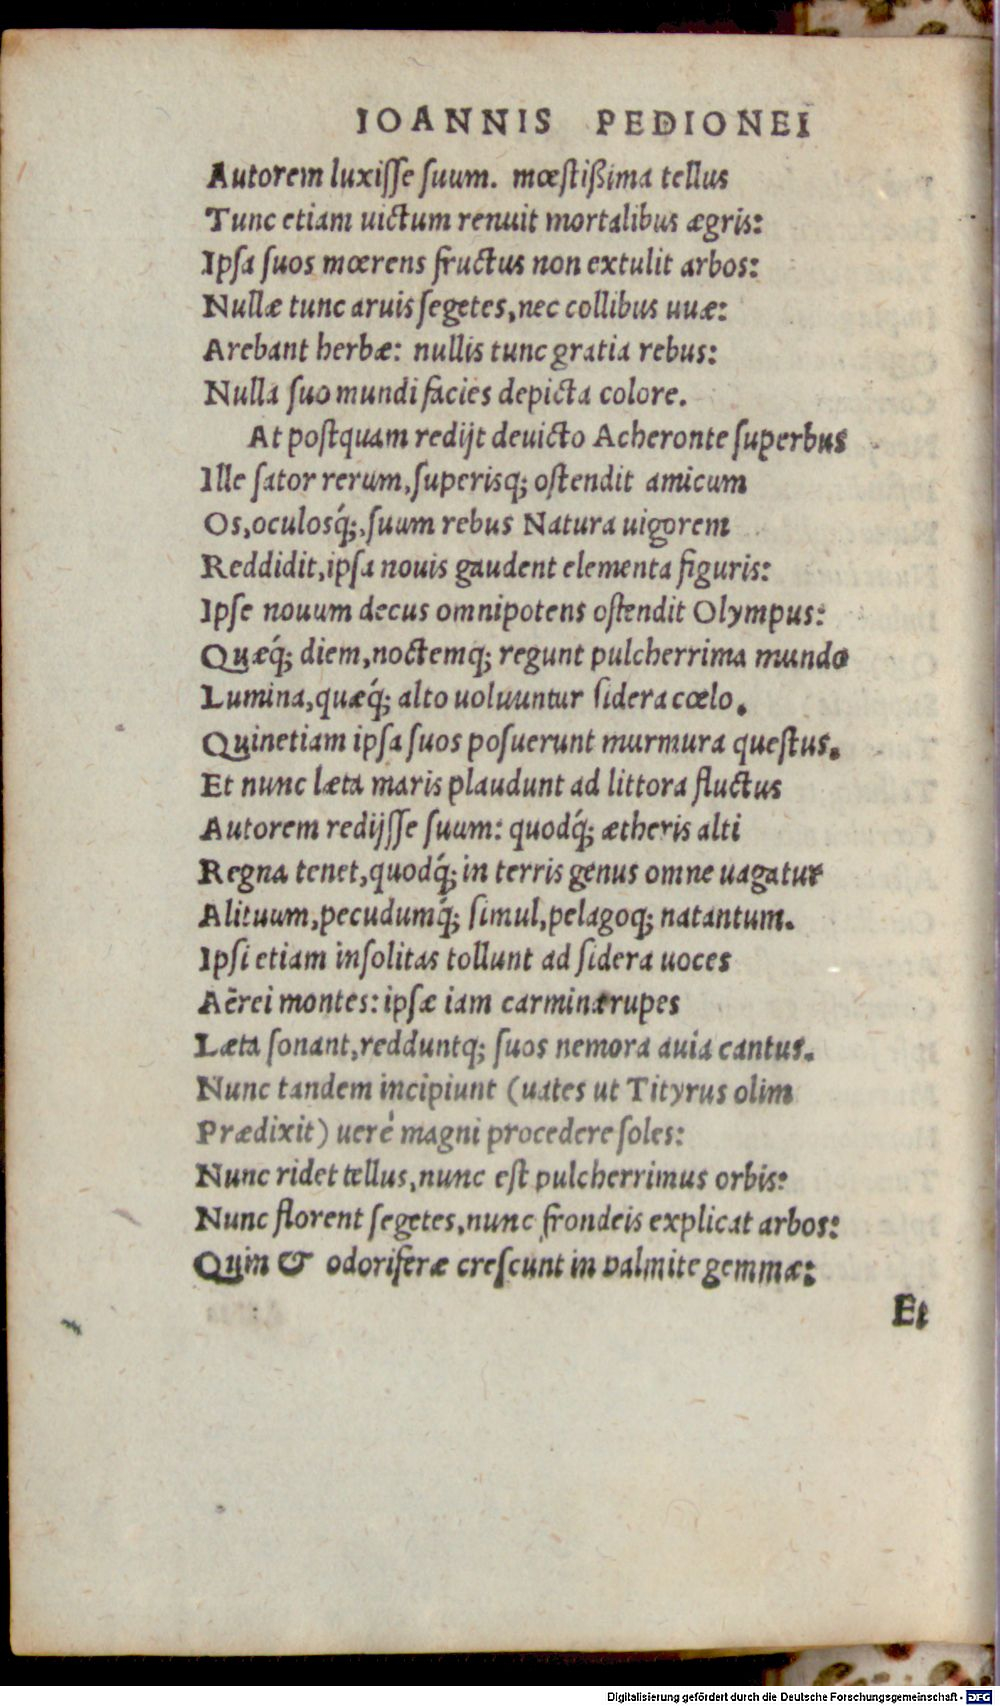 IOANNIS PEDIONEI
Autorem luxisse suum. mœstißima tellus
Tunc etiam uictum renuit mortalibus ægris:
Ipsa suos mœrens fructus non extulit arbos:
Nullæ tunc aruis segetes, nec collibus uuæ:
Arebant herbæ: nullis tunc gratia rebus:
Nulla suo mundi facies depicta colore.
At postquam redijt deuicto Acheronte superbus
Ille sator rerum, superisq; ostendit amicum
Os, oculosq́;, suum rebus Natura uigorem
Reddidit, ipsa nouis gaudent elementa figuris:
Ipse nouum decus omnipotens ostendit Olympus:
Quæq́; diem, noctemq; regunt pulcherrima mundo
Lumina, quæq́; alto uoluuntur sidera cœlo.
Quinetiam ipsa suos posuerunt murmura questus.
Et nunc læta maris plaudunt ad littora fluctus
Autorem redijsse suum: quodq́; ætheris alti
Regna tenet, quodq́; in terris genus omne uagatur
Alituum, pecudumq́; simul, pelagoq; natantum.
Ipsi etiam insolitas tollunt ad sidera uoces
Aërei montes: ipsæ iam carmina rupes
Læta sonant, redduntq; suos nemora auia cantus.
Nunc tandem incipiunt (uates ut Tityrus olim
Prædixit) uerè magni procedere soles:
Nunc ridet tellus, nunc est pulcherrimus orbis:
Nunc florent segetes, nunc frondeis explicat arbos:
Quin & odoriferæ crescunt in palmite gemmæ:
Et
Digitalisierung gefördert durch die Deutsche Forschungsgemeinschaft - DFG